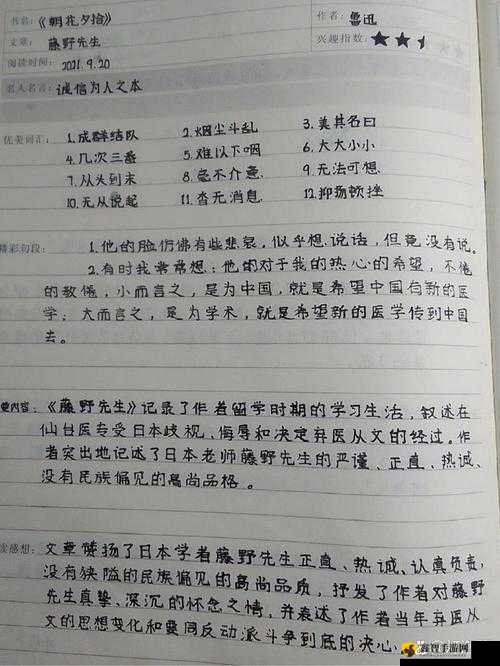 书名：《朝花夕拾》 作者：鲁迅
文章：藤野先生 兴趣指数：★★
阅读时间：2021.9.20
名人名言：诚信为人之本
优美词汇： 1.成群结队 2.烟尘斗乱 3.美其名曰
4.几次三番 5.难以下咽 6.大大小小
7.从头到末 8.毫不介意 9.无法可想
10.无从说起 11.杳无消息 12.抑扬顿挫
精彩句段： 1.他的脸仿佛有些悲哀，似乎想说话，但竟没有说。
2.有时我常常想：他的对于我的热心的希望，不倦
的教倦，小而言之，是为中国，就是希望中国有新的医
学；大而言之，是为学术，就是希望新的医学传到中国
去。
要内容：《藤野先生》记录了作者留学时期的学习生活，叙述在
仙台医专受日本歧视、侮辱和决定弃医从文的经过。作
者突出地记述了日本老师藤野先生的严谨、正直、热诚、
没有民族偏见的高尚品格。
读感想： 文章赞扬了日本学者藤野先生正直、热诚、认真负责，
没有狭隘的民族偏见的高尚品质，抒发了作者对藤野
先生真挚、深沉的怀念之情，并表述了作者当年弃医从
文的思想变化和要同反动派斗争到底的决心。
鑫智手游网